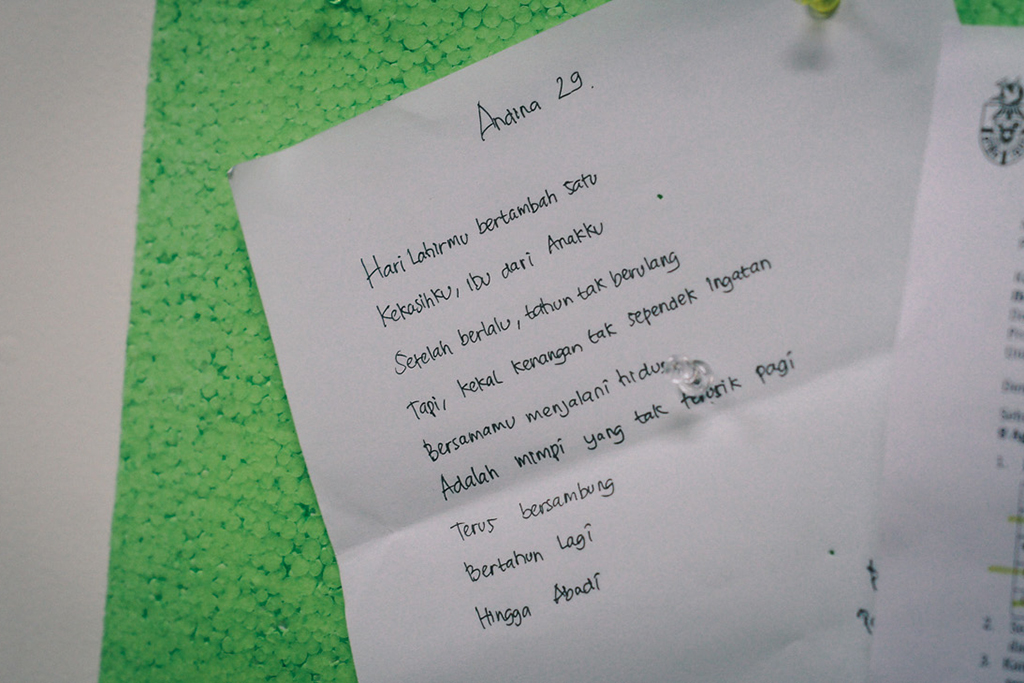 Andina 29.
Hari Lahirmu bertambah satu
Kekasihku, Ibu dari Anakku
Setelah berlalu, tahun tak berulang
Tapi, kekal kenangan tak sependek Ingatan
Bersamamu menjalani hidup
Adalah mimpi yang tak terusik pagi
Terus bersambung
Bertahun Lagi
Hingga Abadi
1.
2.
3.